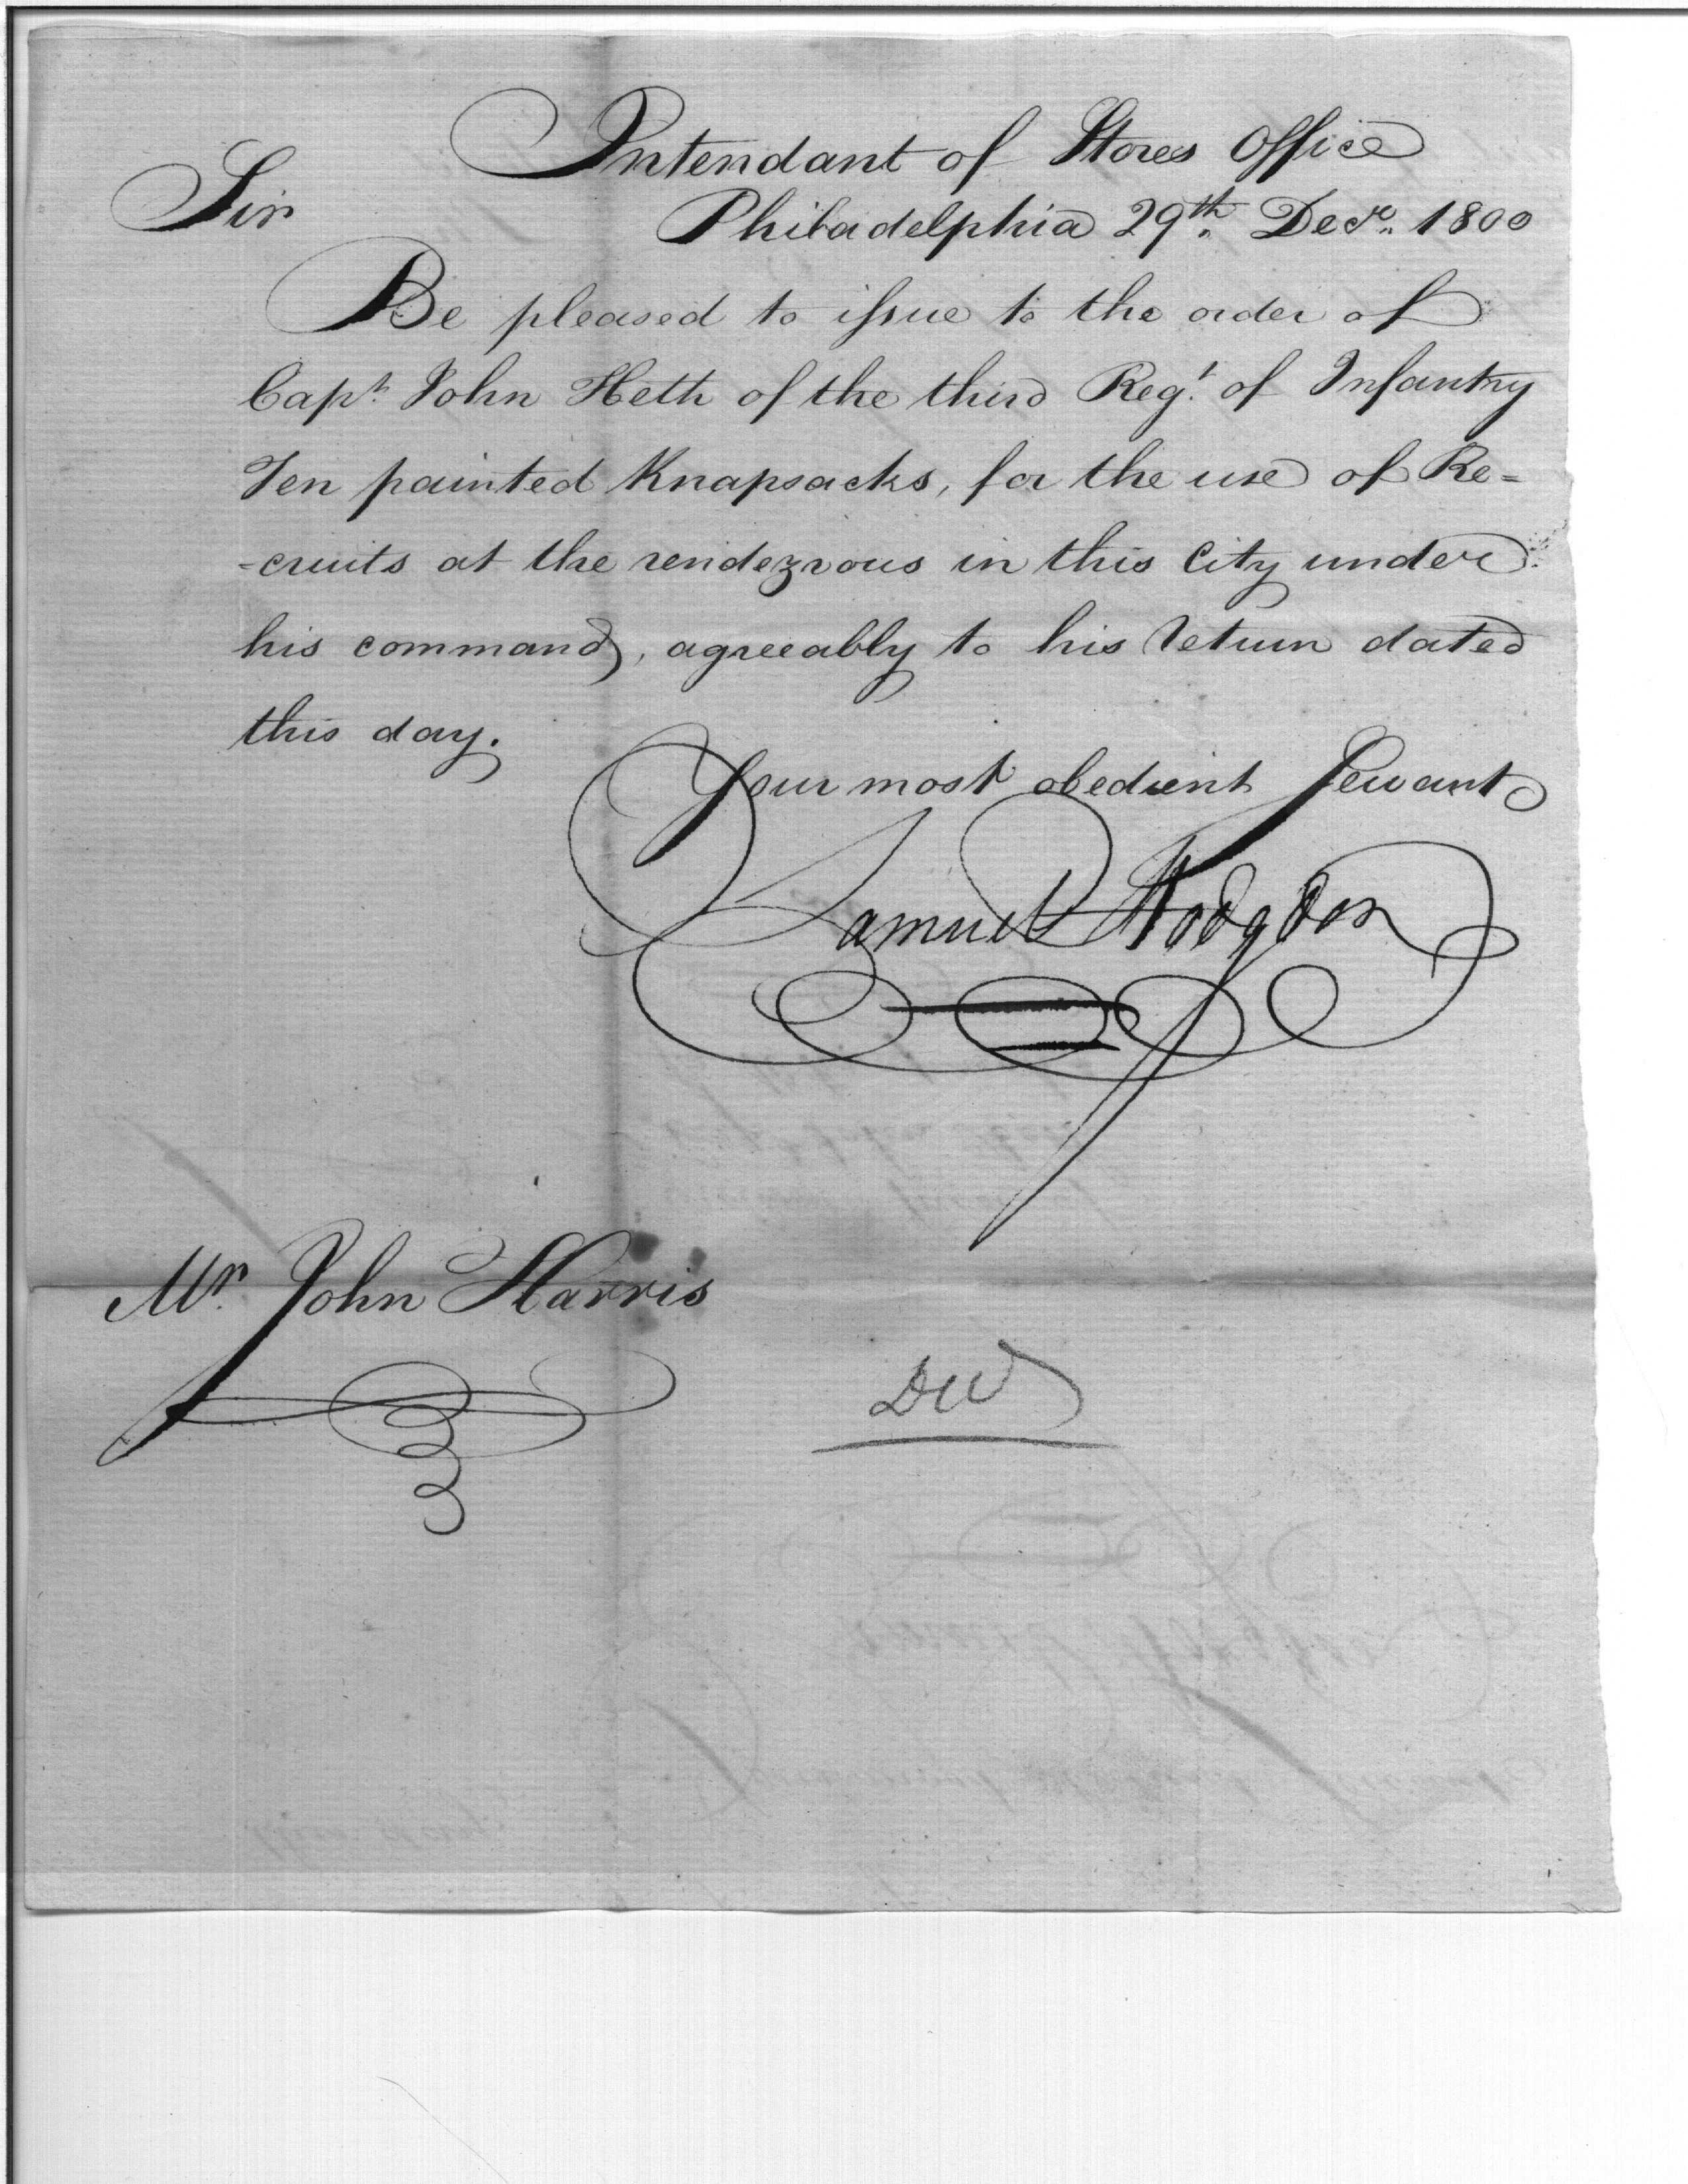 Intendant of Stores Office
Sir
Philadelphia 29th. Decr. 1800
Be pleased to issue to the order of
Capt. John Heth of the third Regt. of Infantry
Ten painted Knapsacks, for the use of Re=
-cruits at the rendezvous in this City under
his command, agreeably to his return dated
this day.
Your most obedient Servant
Samuel Hodgdon
Mr. John Harris